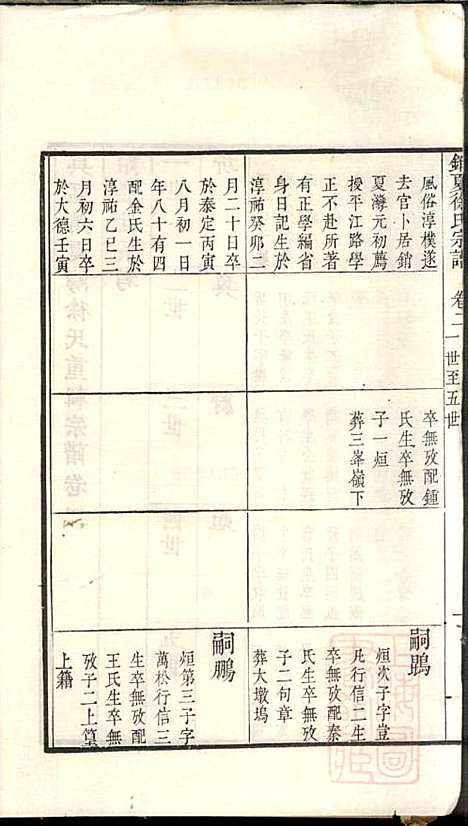 銷夏徐氏宗譜 卷二 一世至五世
風俗淳樸遂
去官卜居銷
夏灣元初薦
授平江路學
正不赴所著
有正學編省
身日記生於
淳祐癸卯二
月二十日卒
於泰定丙寅
八月初一日
年八十有四
配金氏生於
淳祐乙巳三
月初六日卒
於大德壬寅
卒無攷配鍾
氏生卒無攷
子一烜
葬三峯嶺下
嗣鵾
烜次子字
凡行信二生
卒無攷配秦
氏生卒無攷
子二句章
葬大墩塢
嗣鵬
烜第三子字
萬松行信三
生卒無攷配
王氏生卒無
攷子二上篁
上籍